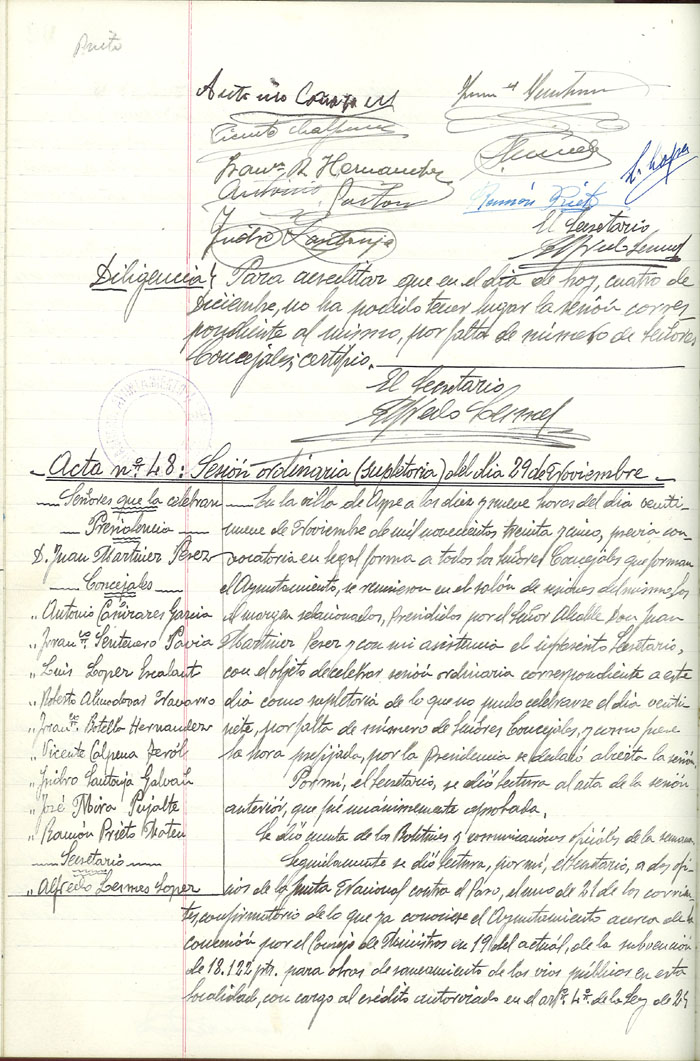 Prieto
Antonio Cañizares
Vicente Calpena
Fran.co B. Hernandez
Antonio Pastor
Isidro Santonja
L. López
Ramón Prieto
El Secretario
Alfredo Lermes
Diligencia: Para acreditar que en el dia de hoy, cuatro de
Diciembre, no ha podido tener lugar la sesión corres
pondiente al mismo, por falta de número de Señores
Concejales; certifico.
El Secretario
Alfredo Lermes
Acta nº. 48: Sesión ordinaria (supletoria) del dia 29 de Noviembre
Señores que la celebran
Presidencia
D. Juan Martinez Perez
Concejales
" Antonio Cañizares Garcia
" Fran.co Sentenero Pavia
" Luis Lopez Escalant
" Roberto Almodovar Navarro
" Fran.co Botella Hernandez
" Vicente Calpena Teról
" Isidro Santonja Galvañ
" José Mira Pujalte
" Ramón Prieto Mateu
Secretario
" Alfredo Lermes Lopez
En la villa de Aspe a las diez y nueve horas del dia veinti
nueve de Noviembre de mil novecientos treinta y cinco, previa con-
vocatoria en legal forma a todos los Señores Concejales que forman
el Ayuntamiento, se reunieron en el salón de sesiones del mismo los
al margen relacionados, presididos por el Señor Alcalde Don Juan
Martinez Perez y con mi asistencia el infrascrito Secretario,
con el objeto de celebrar sesión ordinaria correspondiente a este
dia como supletoria de la que no pudo celebrarse el dia veinti
siete, por falta de número de Señores Concejales, y como fuese
la hora prefijada, por la Presidencia se declaró abierta la sesión.
Por mi, el Secretario, se dió lectura al acta de la sesión
anterior, que fué unánimemente aprobada.
Se dió cuenta de los Boletines y comunicaciones oficiales de la semana.
Seguidamente se dió lectura, por mi, el Secretario, a dos ofi
cios de la Junta Nacional contra el Paro, el uno de 21 de los corrien-
tes, confirmatorio de lo que ya conociese el Ayuntamiento acerca de la
concesión por el Consejo de Ministros en 19 del actual, de la subvención
de 18.122 pts. para obras de saneamiento de las vias públicas en esta
localidad, con cargo al crédito autorizado en el artº. 4º. de la Ley de 25